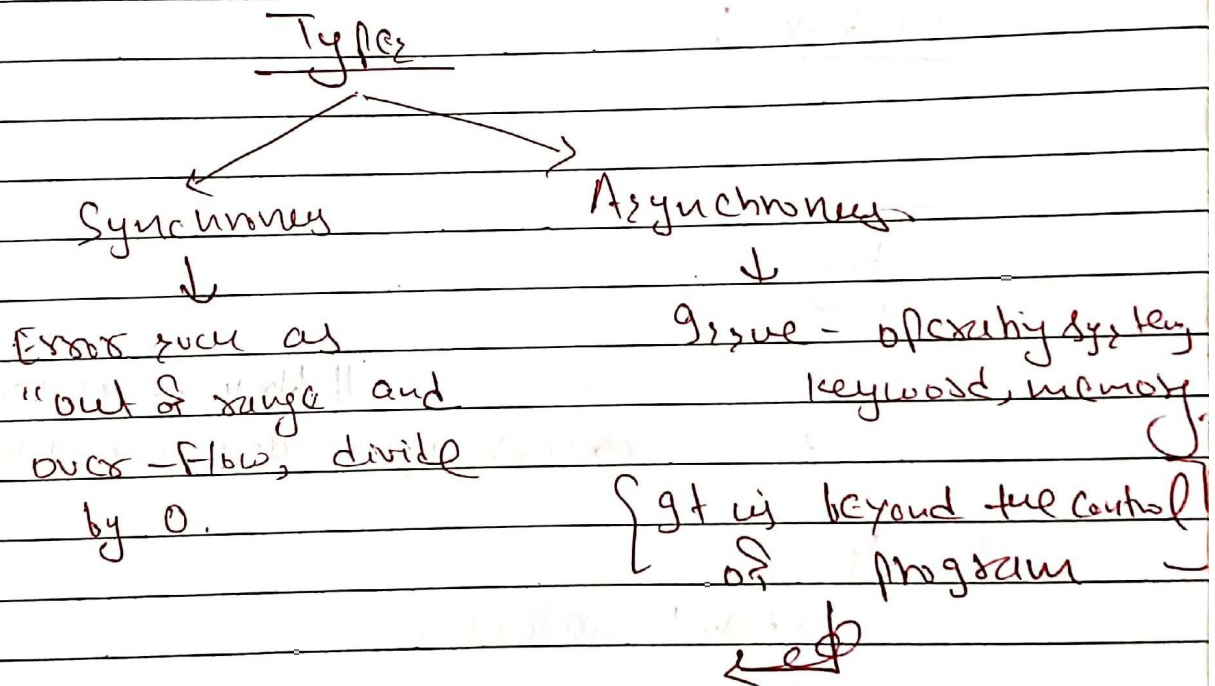 Types
Synchronous
Asynchronous
Error such as
"out of range and
over-flow, divide
by 0.
Issue - operating system,
keyword, memory
{It is beyond the control
of program}